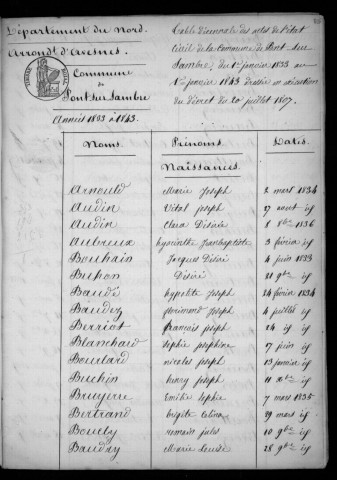 Département du Nord.
Arrond.t d'Avesnes.
Commune
de
Pont sur Sambre
Années 1833 à 1843.
Table Décennale des actes de l'état
Civil de la Commune de Pont sur
Sambre, du 1er janvier 1833 au
1er janvier 1843 dressée en exécution
du décret du 20 juillet 1807.
Noms. Prénoms. Dates.
Naissances.
Arnould Marie Joseph 2 mars 1834
Audin Vital Joseph 27 aout id
Audin Clara Désirée 8 8bre 1836
Aubreux hyacinthe Jeanbaptiste 3 février id
Bouhain Jacques Désiré 4 juin 1833
Buhon Désiré 21 9bre id
Baudé hypolite Joseph 24 février 1834
Baudez florimond Joseph 4 juillet id
Berriot françois joseph 24 id id
Blanchard sophie josephine 17 juin id
Boulard nicolas joseph 13 janvier id
Buchin henry joseph 11 Xbre id
Bruyerre Emilie Sophie 7 mars 1835
Bertrand brigite Celina 29 mars id
Bouchy romain jules 10 9bre id
Baudry Marie Louise 28 9bre id